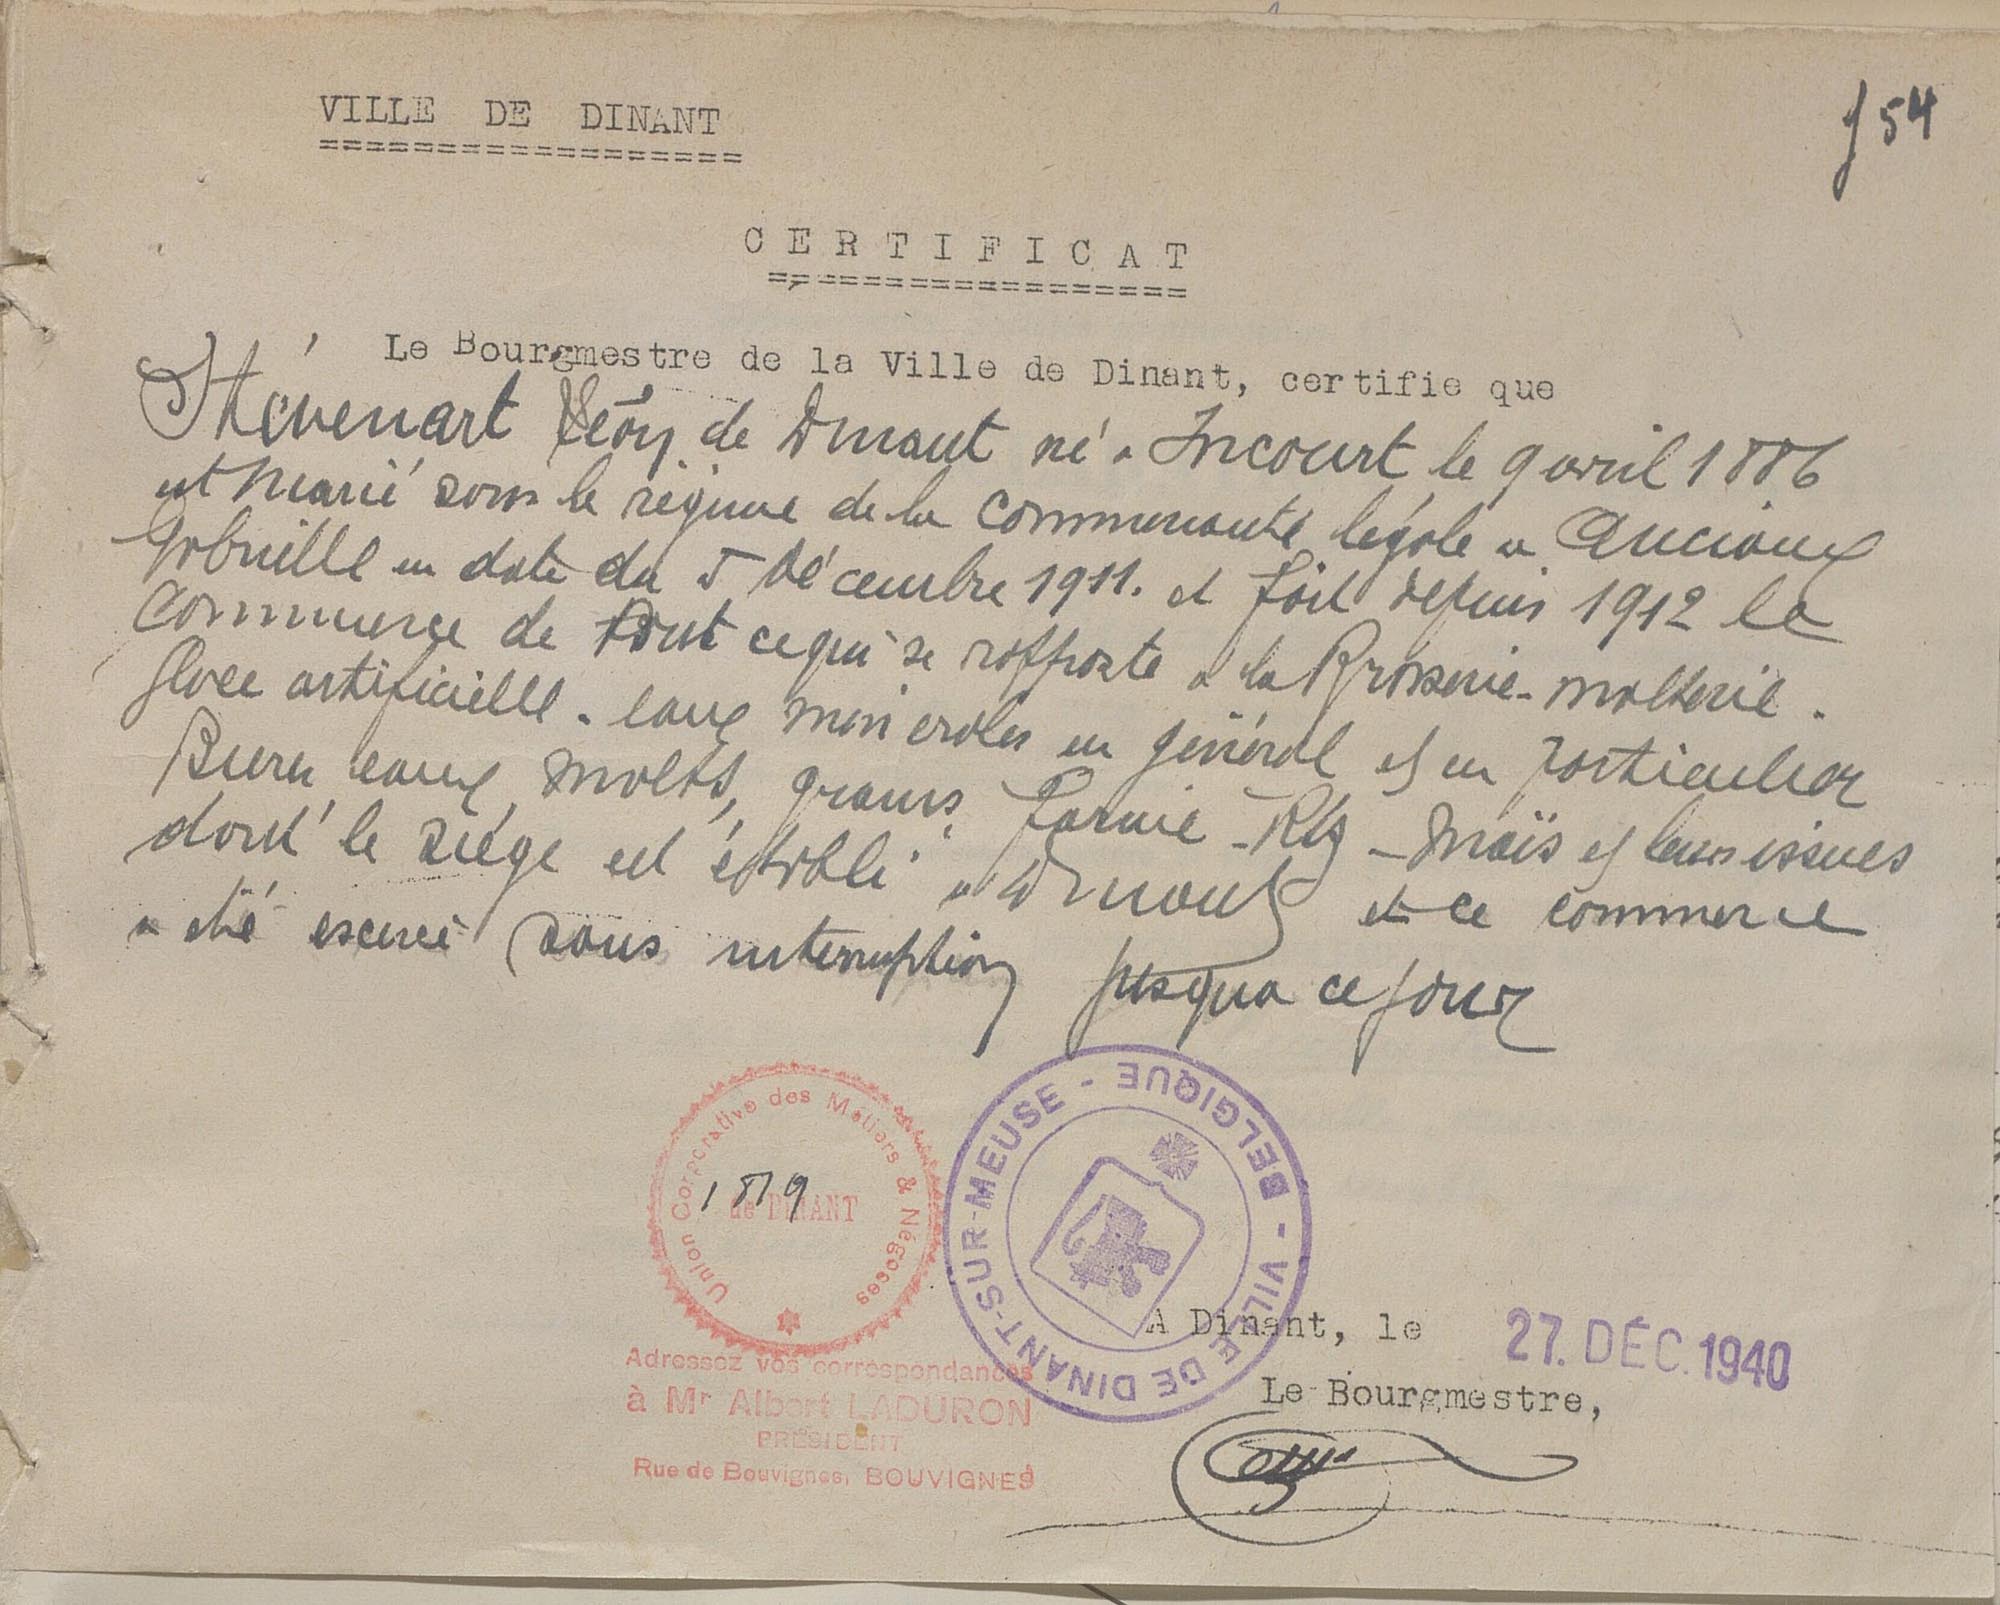 f 54
VILLE DE DINANT
===================
C E R T I F I C A T
===================
Le Bourgmestre de la Ville de Dinant, certifie que
Thévenart Léon de Dinant né a Incourt le 9 avril 1886
est marié sous le régime de la communauté légale a Anciaux
Gabrielle en date du 5 Décembre 1911. et fait depuis 1912 le
Commerce de tout ce qui se rapporte a la Brasserie - malterie -
Glace artificielle - eaux minerales en général et en particulier
Bieres eaux, malts, grains, farine - Riz - Maïs et leurs issues
dont le siége est établi a Dinant et ce commerce
a été exercé sans interruption jusqua ce jour
Union Corporative des Métiers & Négoces
de DINANT
1879
Adressez vos correspondances
à Mr Albert LADURON
PRÉSIDENT
Rue de Bouvignes, BOUVIGNES
VILLE DE DINANT-SUR-MEUSE - BELGIQUE -
A Dinant, le 27. DÉC. 1940
Le Bourgmestre,